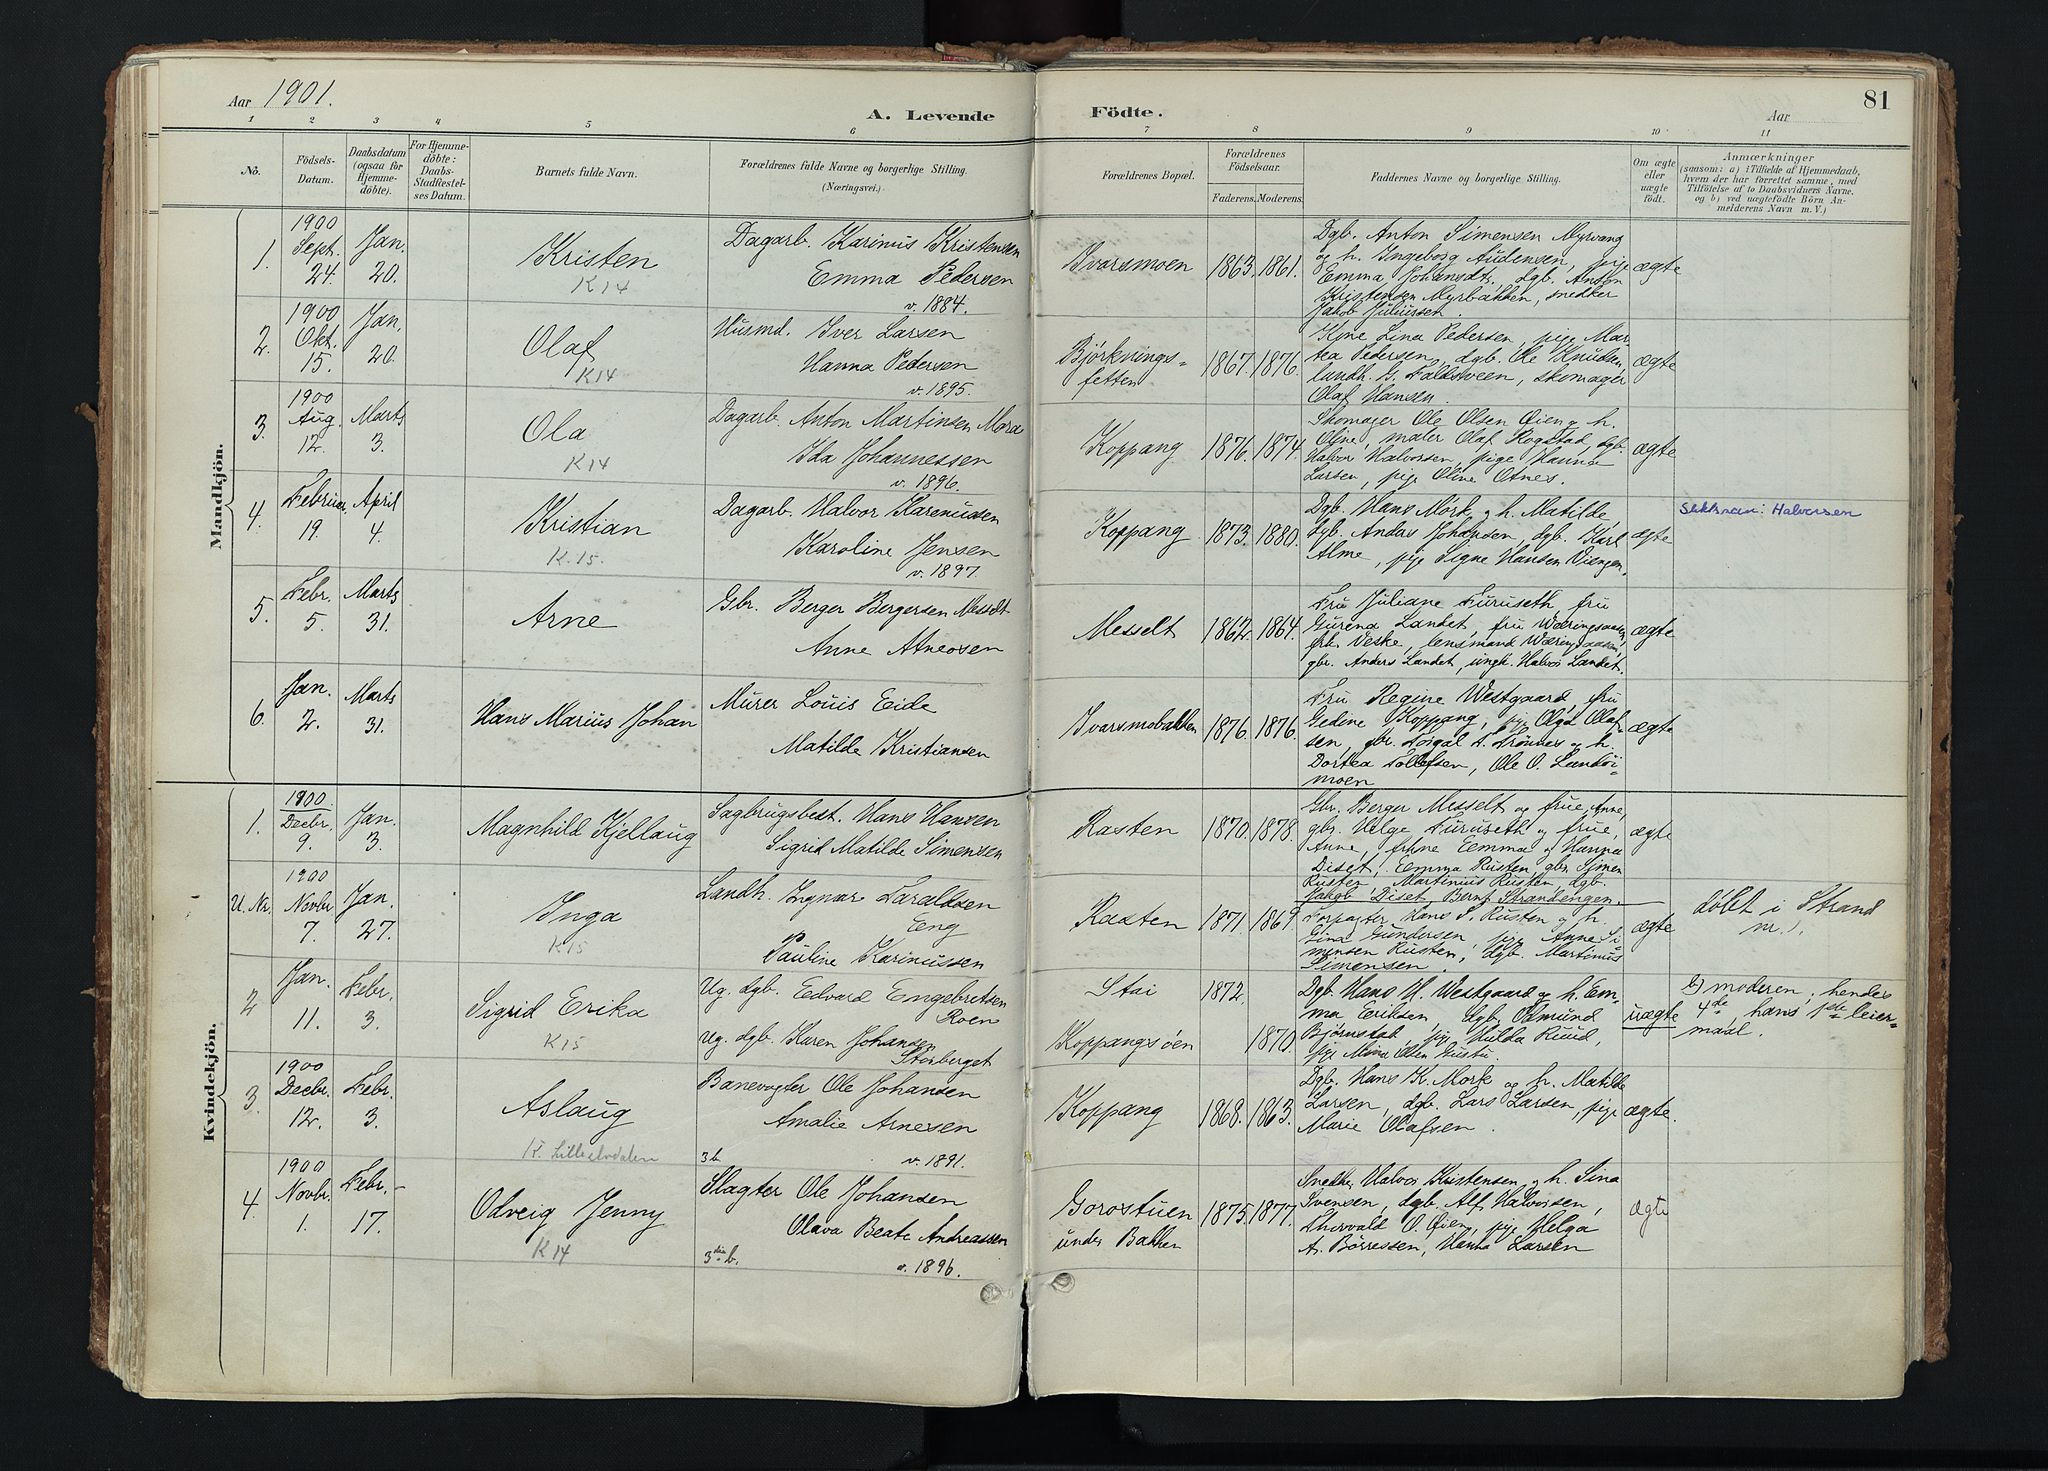 Aar 1901.
A. Levende
Födte.
Aar
81
1 2 3 4 5 6 7 8 9 10 11
No.
Födsels-
Datum.
Daabsdatum
(ogsaa for
Hjemme-
döbte).
For Hjemme-
döbte:
Daabs-
Stadfæstel-
ses Datum.
Barnets fulde Navn.
Forældrenes fulde Navne og borgerlige Stilling.
(Næringsvei.)
Forældrenes Bopæl.
Forældrenes
Födselsaar.
Faderens. Moderens.
Faddernes Navne og borgerlige Stilling.
Om ægte
eller
uægte
födt.
Anmærkninger
(saasom: a) i Tilfælde af Hjemmedaab,
hvem der har forrettet samme, med
Tilföielse af to Daabsvidners Navne,
og b) ved uægtefödte Börn An-
melderens Navn m. V.)
Mandkjön.
1. 1900 Sept. 24. Jan. 20. Kristen K14
Dagarb. Karinus Kristensen
Emma Pedersen
v. 1884.
Ivarsmoen 1863. 1861.
Dgb. Anton Simensen Myrvang
og h. Ingeborg Audensen, pige
Emma Johansdt., dgb. Anton
Kristensen Myrbakken, snedker
Jakob Juliusset.
ægte
2. 1900 Okt. 15. Jan. 20. Olaf K14
Husmd. Iver Larsen
Hanna Pedersen
v. 1895.
Björknings-
fetten 1867. 1876.
Kone Lina Pedersen, pige Mar-
tea Pedersen, dgb. Ole Knudsen
landh. G. Faldsveen, skomager
Olaf Hansen.
ægte
3. 1900 Aug. 12. Marts 3. Ola K14
Dagarb. Anton Martinsen Mora
Ida Johannessen
v. 1896.
Koppang 1876. 1874.
Skomager Ole Olsen Öien og h.
Oline, maler Olaf Rogstad, dgb.
Halvor Halvorsen, pige Hanna
Larsen, pige Oline Otnes.
ægte
4. Februar 19. April 4. Kristian K.15.
Dagarb. Halvor Karenussen
Karoline Jensen
v. 1897.
Koppang 1873. 1880.
Dgb. Hans Mörk og h. Matilde
dgb. Anders Johansen, dgb. Karl
Alme, pige Signe Hansen Viengen.
ægte
Slektsnavn: Halvorsen
5. Febr. 5. Marts 31. Arne
Gbr. Berger Bergersen Messelt
Anne Atneosen
Messelt 1862. 1864.
Fru Juliane Furuseth, fru
Gurena Landet, fru Wæringsaasen,
frk. Veske, lensmand Wæringsaasen,
gbr. Anders Landet, ungk. Halvor Landet.
ægte
6. Jan. 2. Marts 31. Hans Marius Johan
Murer Louis Eide
Matilde Kristiansen
Ivarsmobakken 1876. 1876.
Fru Regine Westgaard, fru
Gedene Koppang, pige Olga Olaf-
sen, gbr. Torgal T. Trönnes og h.
Dortea Tollefsen, Ole O. Landöi-
moen
ægte
Kvindekjön.
1. 1900 Decbr. 9. Jan. 3. Magnhild Kjellaug
Sagbrugsbest. Hans Hansen
Sigrid Matilde Simensen
Rasten 1870. 1878.
Gbr. Berger Messelt og frue, Anne,
gbr. Helge Furuseth og frue,
Anne, frkne Emma og Hanna
Diset, Emma Rusten, gbr. Simen
Rusten Martinius Rusten dgb.
Jakob Diset, Bernt Strandengen.
ægte
U. Nr. 1900 Novbr. 7. Jan. 27. Inga K15
Landh. Ingvar Taraldsen
Eng
Pauline Karinussen
Rasten 1871. 1869.
Forpagter Hans S. Rusten og h.
Gina Gundersen, pige Anne Si-
mensen Rusten, dgb. Martinus
Simensen.
ægte
döbt i Strand
nr. 1.
2 Jan. 11. Febr. 3. Sigrid Erika K15
Ug. dgb. Edvard Engebretsen
Roen
Ug. dgb. Karen Johansen
Storberget
Stai 1872.
Koppangsöen 1870.
Dgb. Hans H. Westgaard og h. Em-
ma Eriksen, dgb. Osmund
Björnstad, pige Hilda Ruud,
pige Mina Olsen
uægte
moderen; hendes
4de, hans 1ste leier-
maal.
3. 1900 Decbr. 12. Febr. 3. Aslaug
K. Lilleelvdalen
Banevogter Ole Johansen
Amalie Arnesen
3b v. 1891.
Koppang 1868. 1863.
Dgb. Hans K. Mörk og h. Matilde
Larsen, dgb. Lars Larsen, pige
Marie Olafsen.
ægte.
4. 1900 Novbr. 1. Febr. 17. Odveig Jenny K14
Slagter Ole Johansen
Olava Beate Andreassen
3die b. v. 1896.
Gorostuen
under Bakken 1875. 1877.
Snedker Halvor Kristensen og h. Sina
Svensen, dgb. Alf Halvorsen,
Thorvald O. Öien, pige Helga
A. Börresen, Hanna Larsen
ægte